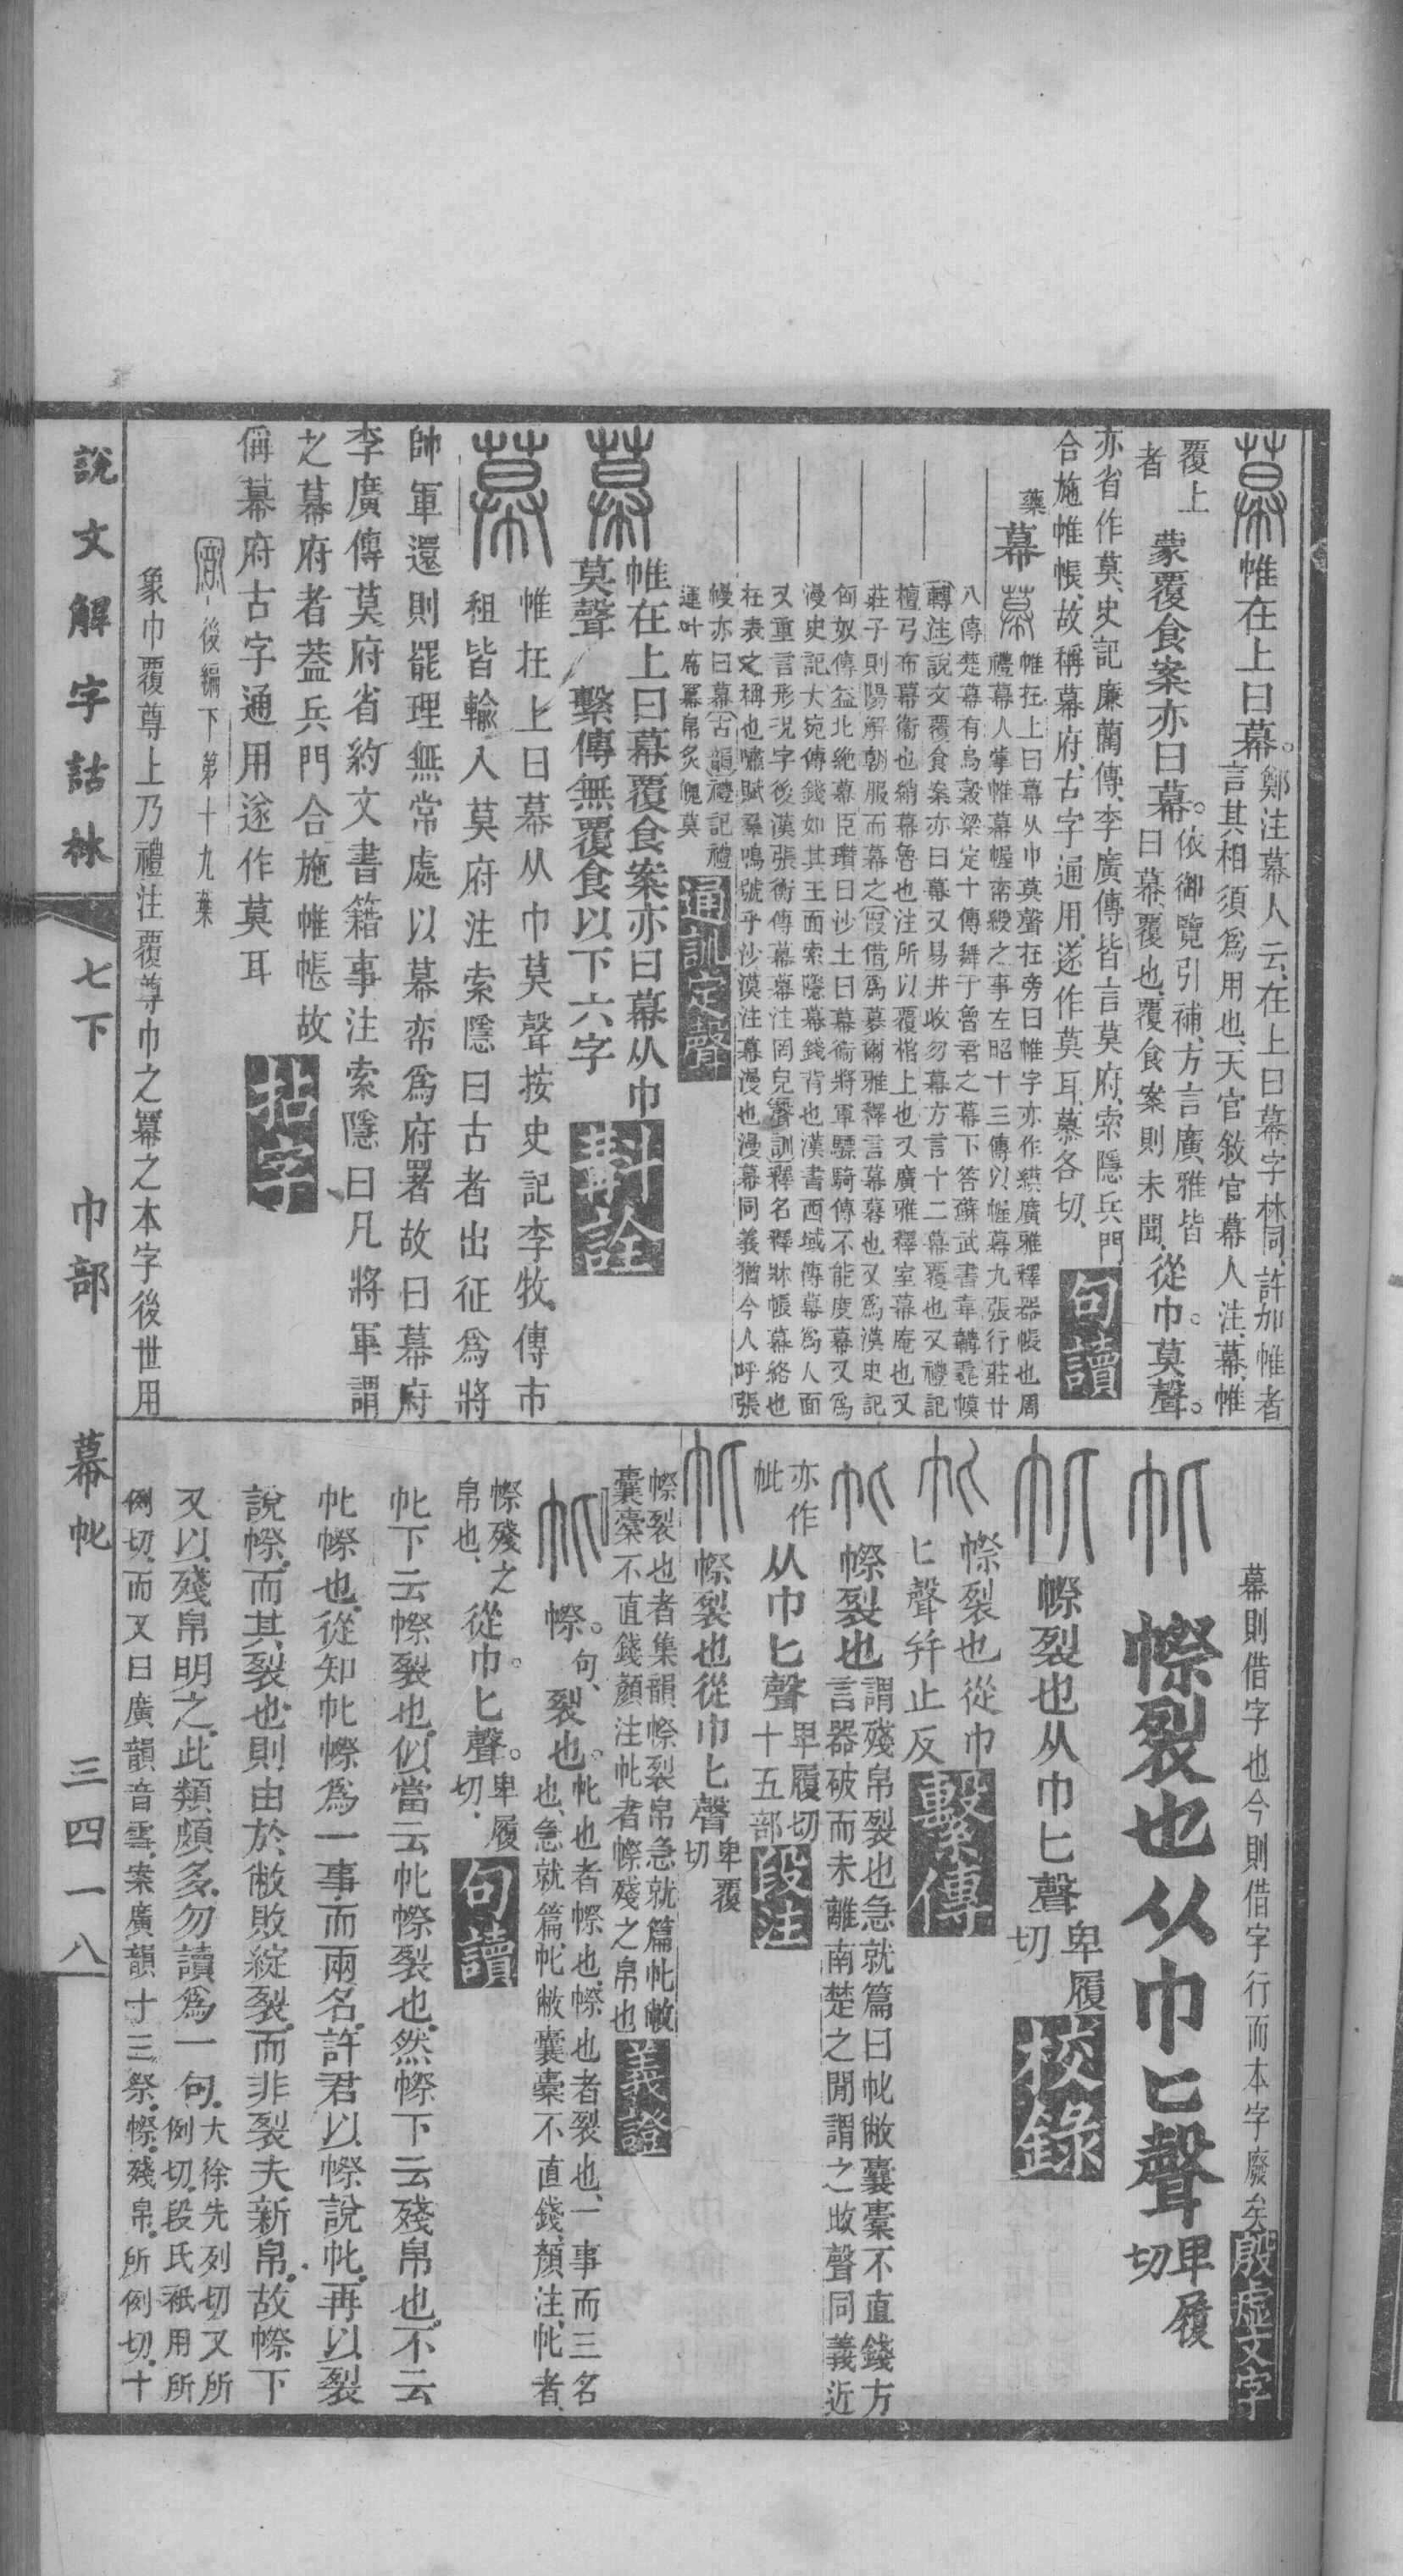 帷在上曰幕。
鄭注幕人云、在上曰幕、字林同、許加帷者
言其相須爲用也、天官敘官幕人注、幕、帷
覆上
者
蒙覆食案亦曰幕。
依御覽引補、方言廣雅皆
曰幕、覆也、覆食案則未聞、
從巾。莫聲。
亦省作莫、史記廉藺傳、李廣傳皆言莫府、索隱兵門
合施帷帳、故稱幕府、古字通用、遂作莫耳、慕各切、
句讀
幕
帷在上曰幕从巾莫聲在旁曰帷字亦作縸廣雅釋器帳也周
禮幕人掌帷幕幄帟綬之事左昭十三傳以幄幕九張行莊廿
八傳楚幕有烏穀梁定十傳舞于魯君之幕下答蘇武書韋韝毳幙
轉注說文覆食案亦曰幕又易井收勿幕方言十二幕覆也又禮記
檀弓布幕衞也綃幕魯也注所以覆棺上也又廣雅釋室幕庵也又
莊子則陽解朝服而幕之假借爲募爾雅釋言幕暮也又爲漠史記
匈奴傳益北絶幕臣瓚曰沙土曰幕衞將軍驃騎傳不能度幕又爲
漫史記大宛傳錢如其王面索隱幕錢背也漢書西域傳幕爲人面
又重言形況字後漢張衡傳幕幕注罔皃聲訓釋名釋牀帳幕絡也
在表之稱也嘯賦羣鳴號乎沙漠注幕漫也漫幕同義猶今人呼張
幔亦曰幕古韻禮記禮
運叶席冪帛炙魄莫
通訓定聲
帷在上曰幕覆食案亦曰幕从巾
莫聲 繫傳無覆食以下六字
斠詮
帷在上曰幕从巾莫聲按史記李牧傳市
租皆輸入莫府注索隱曰古者出征爲將
帥軍還則罷理無常處以幕帟爲府署故曰幕府
李廣傳莫府省約文書籍事注索隱曰凡將軍謂
之幕府者蓋兵門合施帷帳故
偁幕府古字通用遂作莫耳
拈字
後編下第十九葉
象巾覆尊上乃禮注覆尊巾之冪之本字後世用
幕則借字也今則借字行而本字廢矣
殷虛文字
㡜裂也从巾匕聲
卑履
切
㡜裂也从巾匕聲
卑履
切
校錄
㡜裂也從巾
匕聲并止反
繫傳
㡜裂也
謂殘帛裂也急就篇曰㡗敝囊橐不直錢方
言器破而未離南楚之閒謂之㩻聲同義近
亦作
㡙
从巾匕聲
卑履切
十五部
段注
㡜裂也從巾匕聲
卑履
切
㡜裂也者集韻㡜裂帛急就篇㡗敝
囊橐不直錢顏注㡗者㡜殘之帛也
義證
㡜。
句、
裂也。
㡗也者㡜也、㡜也者裂也、一事而三名
也、急就篇、㡗敝囊橐不直錢、顏注、㡗者、
㡜殘之
帛也、
從巾。匕聲。
卑履
切、
句讀
㡗下云㡜裂也、似當云㡗㡜裂也、然㡜下云殘帛也、不云
㡗㡜也、從知㡗㡜爲一事、而兩名、許君以㡜說㡗、再以裂
說㡜、而其裂也、則由於敝敗綻裂、而非裂夫新帛、故㡜下
又以殘帛明之、此類頗多、勿讀爲一句、
大徐先列切、又所
例切、段氏祇用所
例切、而又曰廣韻音雪、案廣韻十三祭、㡜、殘帛、所例切、十
說文解字詁林
七下
巾部
幕㡗
三四一八